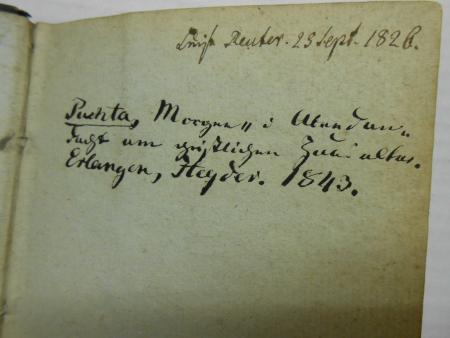 Luise Reuter. 23 Sept. 1826.
Puchta, Morgen„ & Abendan„
dacht am christlichen Hausaltar.
Erlangen, Heyder. 1843.